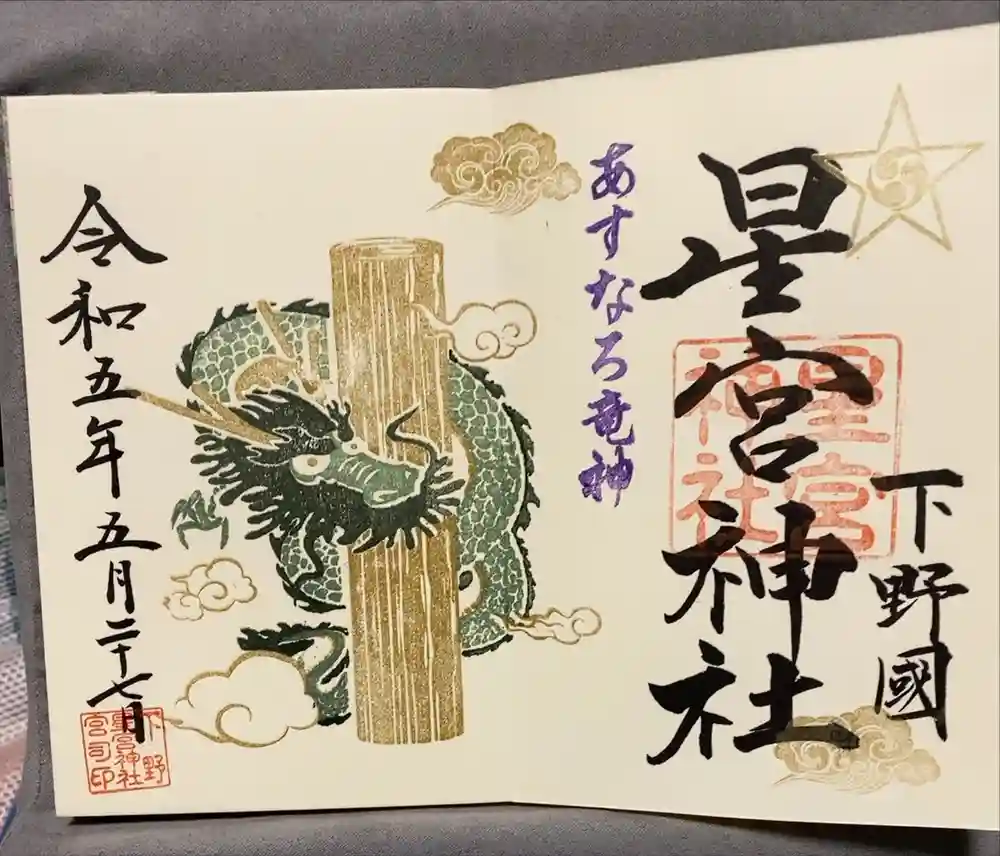 下野國
星宮神社
星宮
神社
あすなろ竜神
令和五年五月二十七日
下野
星宮神社
宮司印